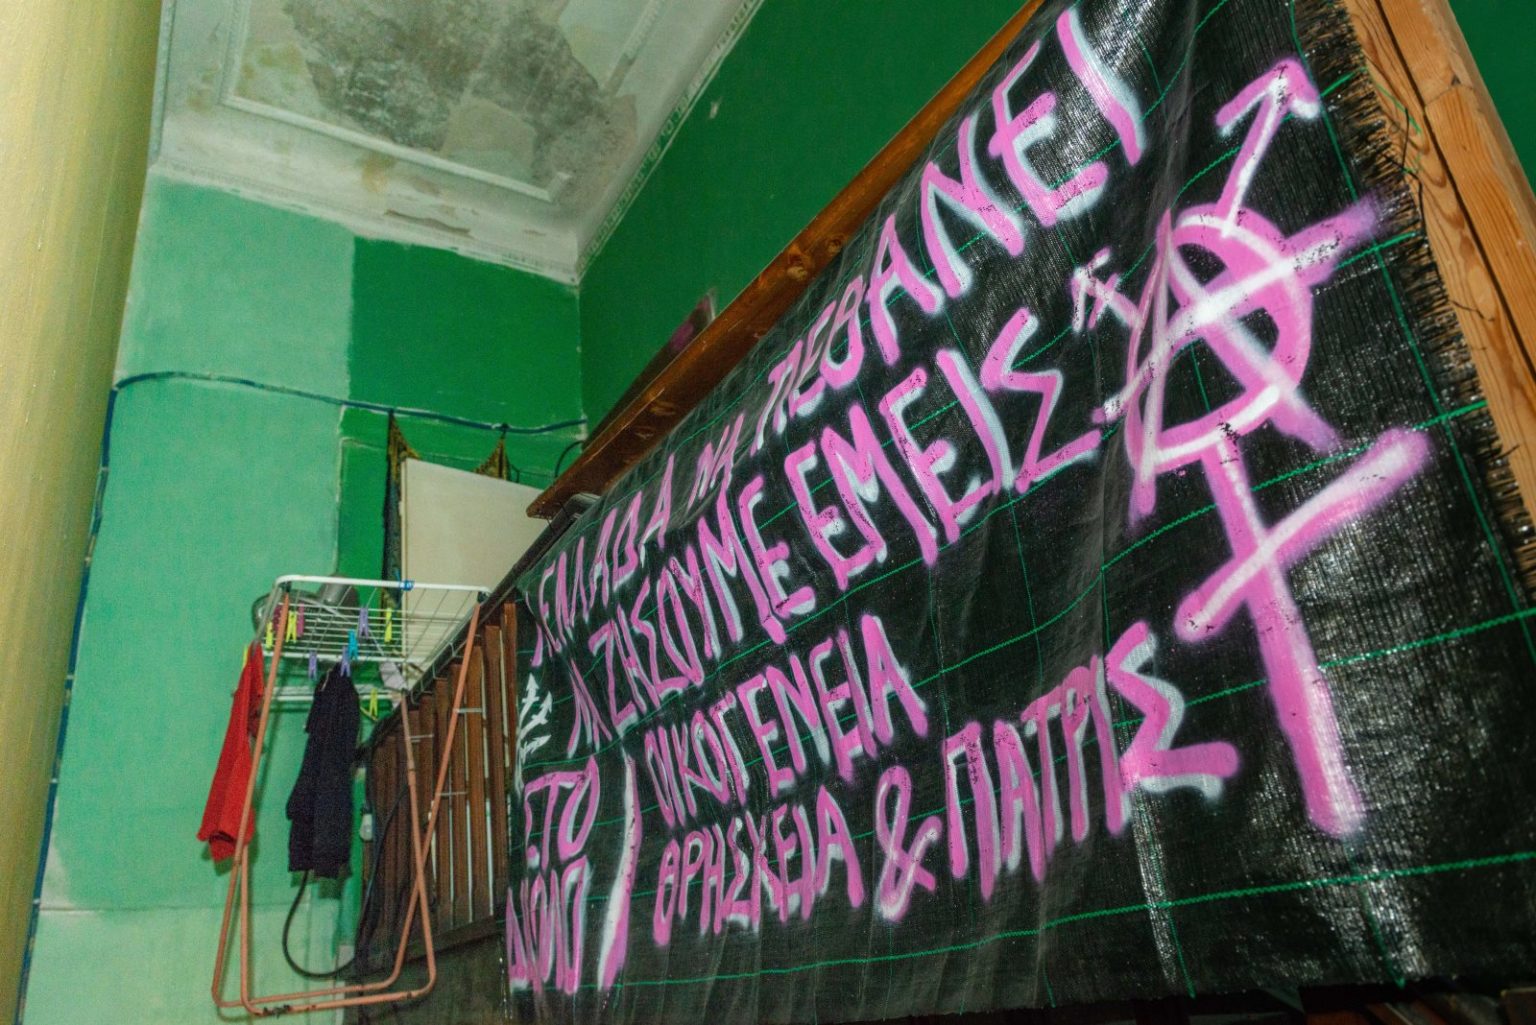 Η ΕΛΛΑΔΑ ΝΑ ΠΕΘΑΝΕΙ
ΝΑ ΖΗΣΟΥΜΕ ΕΜΕΙΣ
ΣΤΟ
ΔΙΑΟΛΟ
ΟΙΚΟΓΕΝΕΙΑ
ΘΡΗΣΚΕΙΑ & ΠΑΤΡΙΣ